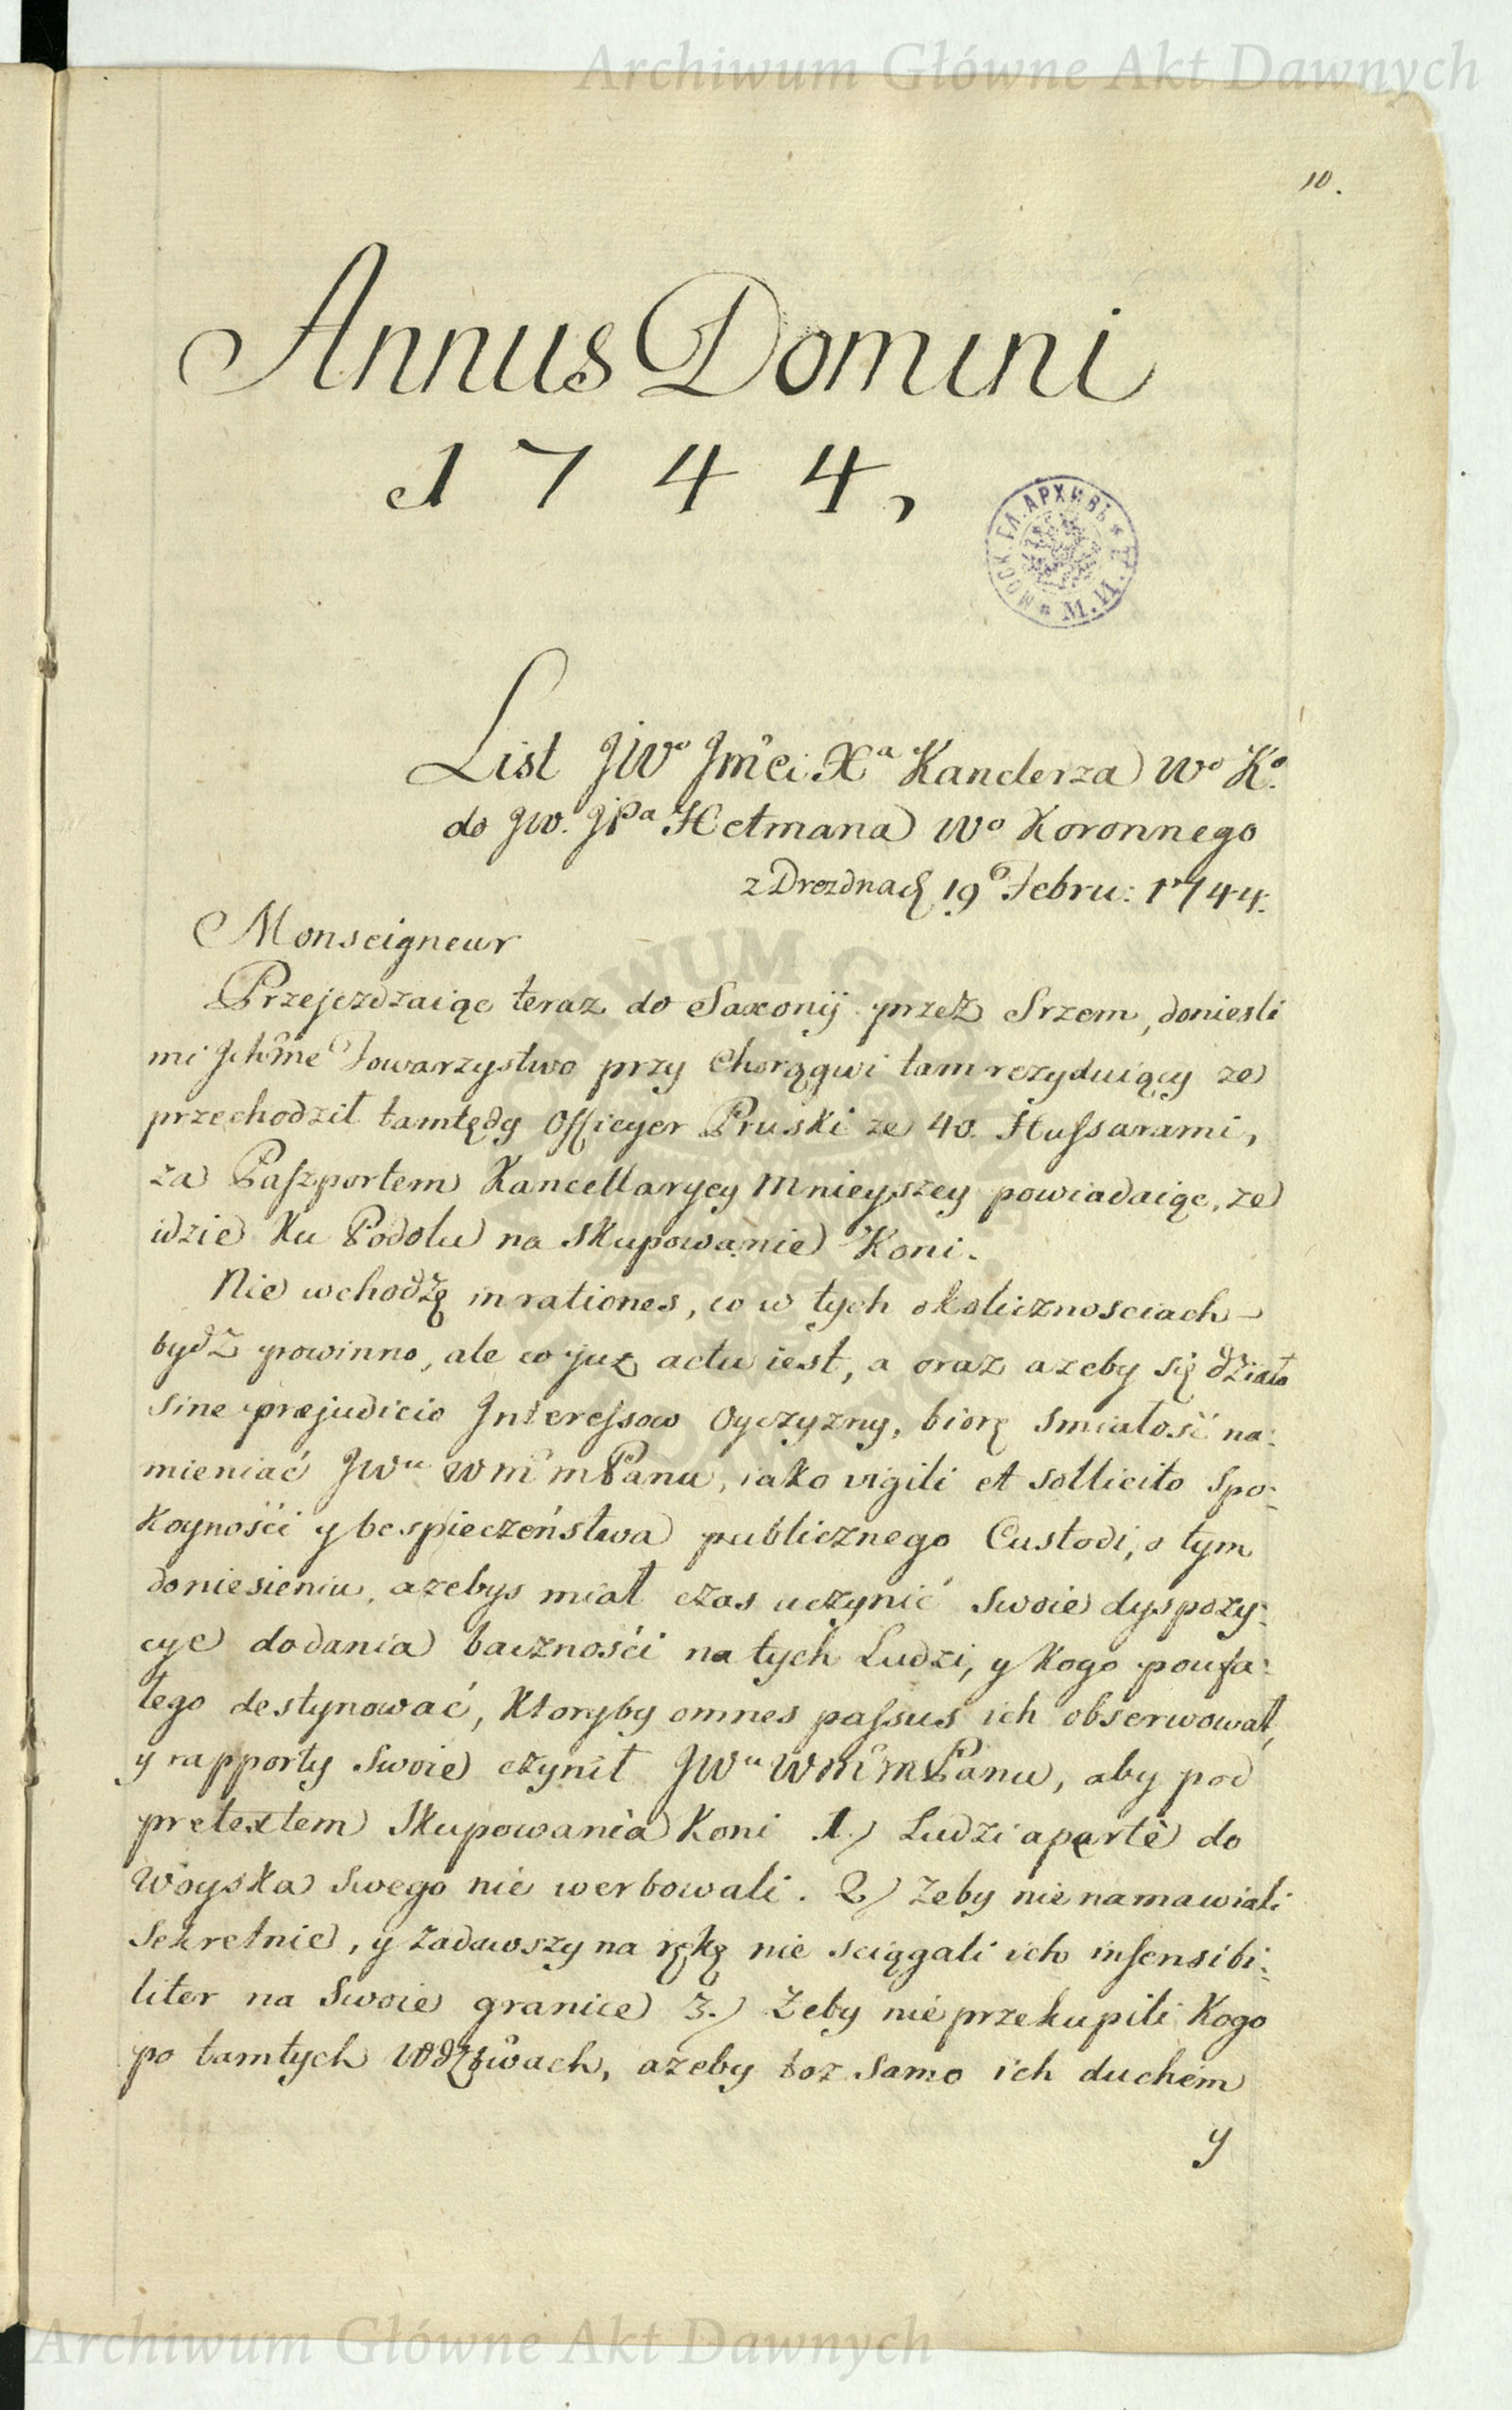 Archiwum Główne Akt Dawnych
10.
Annus Domini
1744,
МОСК. ГЛ. АРХИВЪ * М. И. Д. *
List JWo Jmci Xa Kanclerza Wo Ko.
do JW. JPa Hetmana Wo Koronnego
z Drezdna d. 19o Febru: 1744.
Monseigneur
Przejezdzaiąc teraz do Saxonij przez Srzem, doniesli
mi Ichme Towarzystwo przy Chorągwi tam rezyduiący ze
przechodził tamtędy Officyer Pruski ze 40. Hussarami,
za Paszportem Kancellaryey Mnieyszey powiadaiąc, ze
idzie ku Podolu na skupowanie Koni.
Nie wchodzę in rationes, co w tych okolicznosciach
bydź powinno, ale co juz actu iest, a oraz azeby się działo
sine præjudicio Interessow Oyczyzny, biorę smiałość na:
mieniać JWu WMmPanu, iako vigili et sollicito Spo:
koynośći y bespieczeństwa publicznego Custodi, o tym
doniesieniu, azebys miał czas uczynić swoie dyspozy:
cye dodania bacznośći na tych Ludzi, y kogo poufa:
łego destynować, ktoryby omnes passus ich obserwował,
y rapporty swoie czynił JWu WMmPanu, aby pod
pretextem skupowania Koni 1.) Ludzi apertè do
Woyska swego nie werbowali. 2) Zeby nie namawiali
sekretnie, y zadawszy na rękę nie sciągali ich insensibi:
liter na swoie granice 3.) Zeby nie przekupili kogo
po tamtych, azeby toz samo ich duchem
y
Archiwum Główne Akt Dawnych